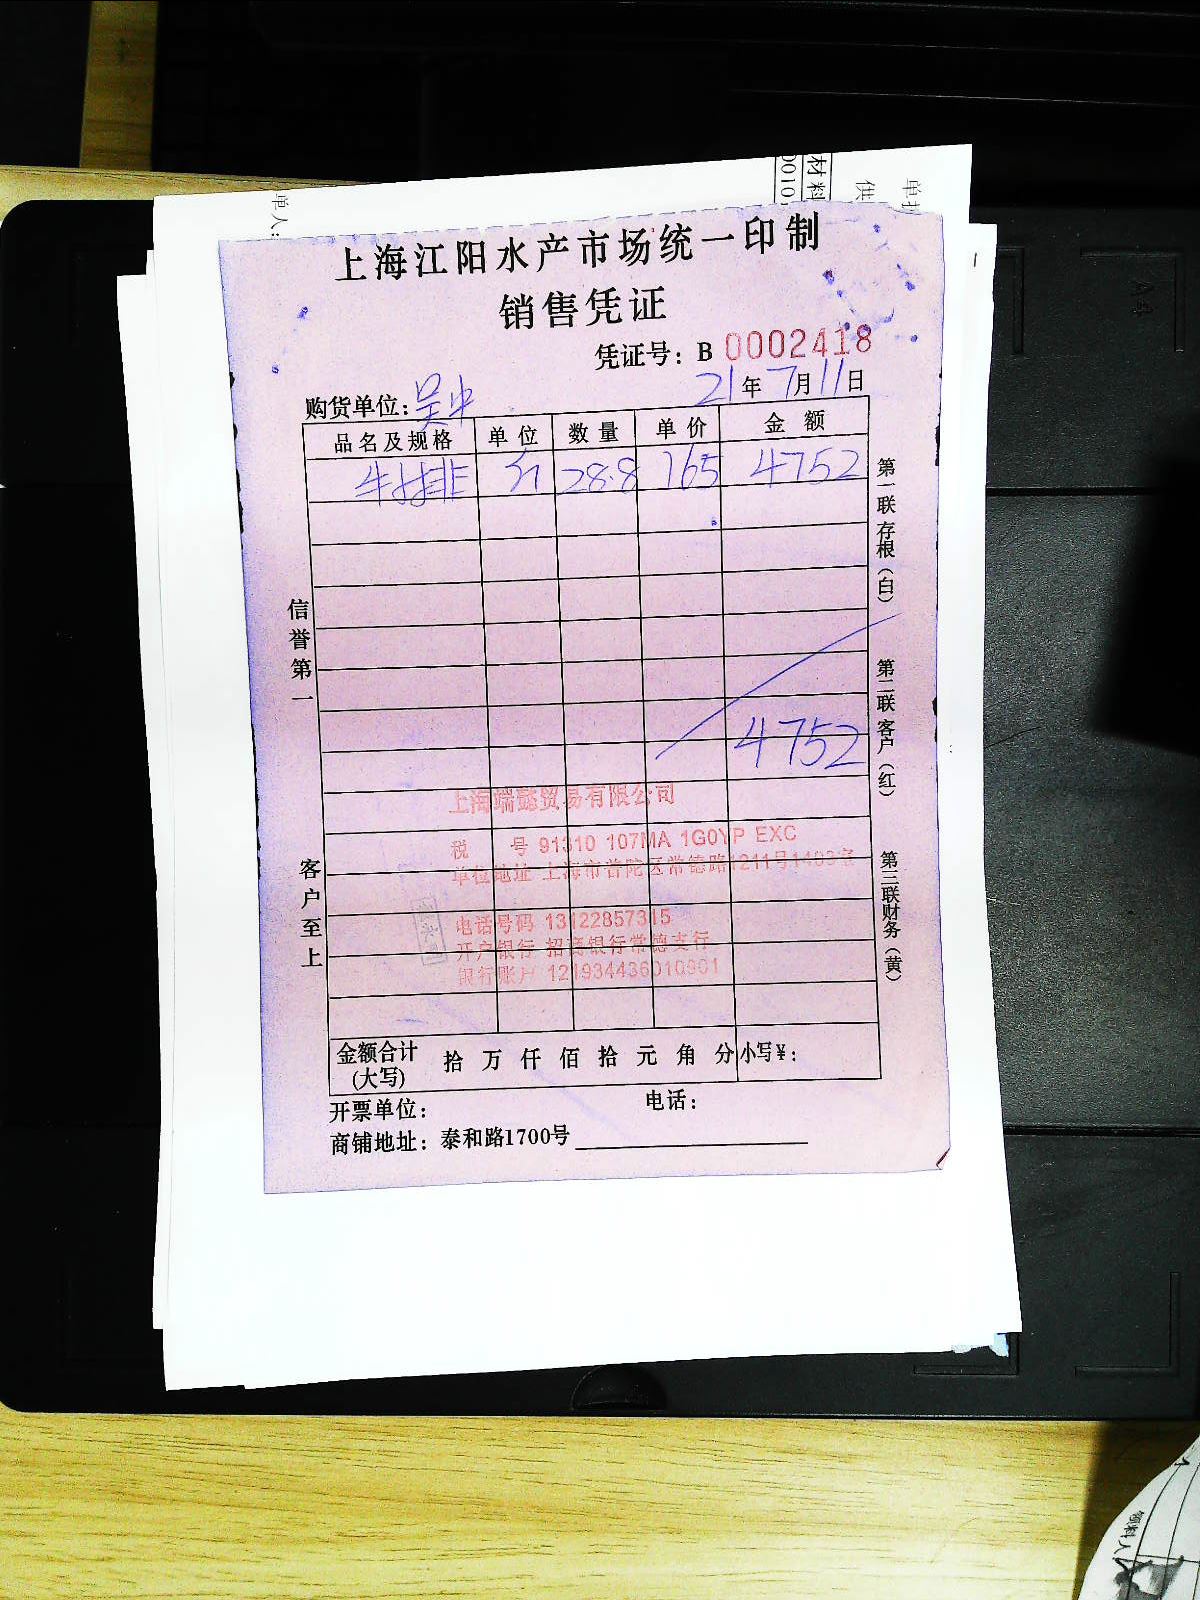 单人:
材料
0010
供
单据
上海江阳水产市场统一印制
销售凭证
凭证号: B 0002418
购货单位: 吴中 21年7月11日
品名及规格 单位 数量 单价 金额
牛排 斤 28.8 165 4752
4752
上海端懿贸易有限公司
税 号 91310 107MA 1G0YP EXC
单位地址 上海市普陀区常德路1211号1403室
电话号码 13122857315
开户银行 招商银行常德支行
银行账户 121934436010901
金额合计(大写) 拾 万 仟 佰 拾 元 角 分 小写¥:
开票单位: 电话:
商铺地址: 泰和路1700号
信誉第一
客户至上
第一联存根(白)
第二联客户(红)
第三联财务(黄)
A4
领料人